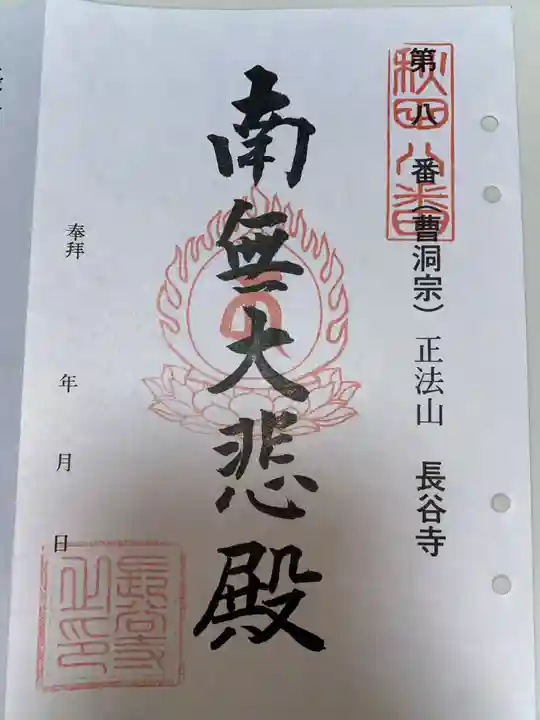 秋田八番
第八番(曹洞宗)正法山 長谷寺
南無大悲殿
奉拝 年 月 日